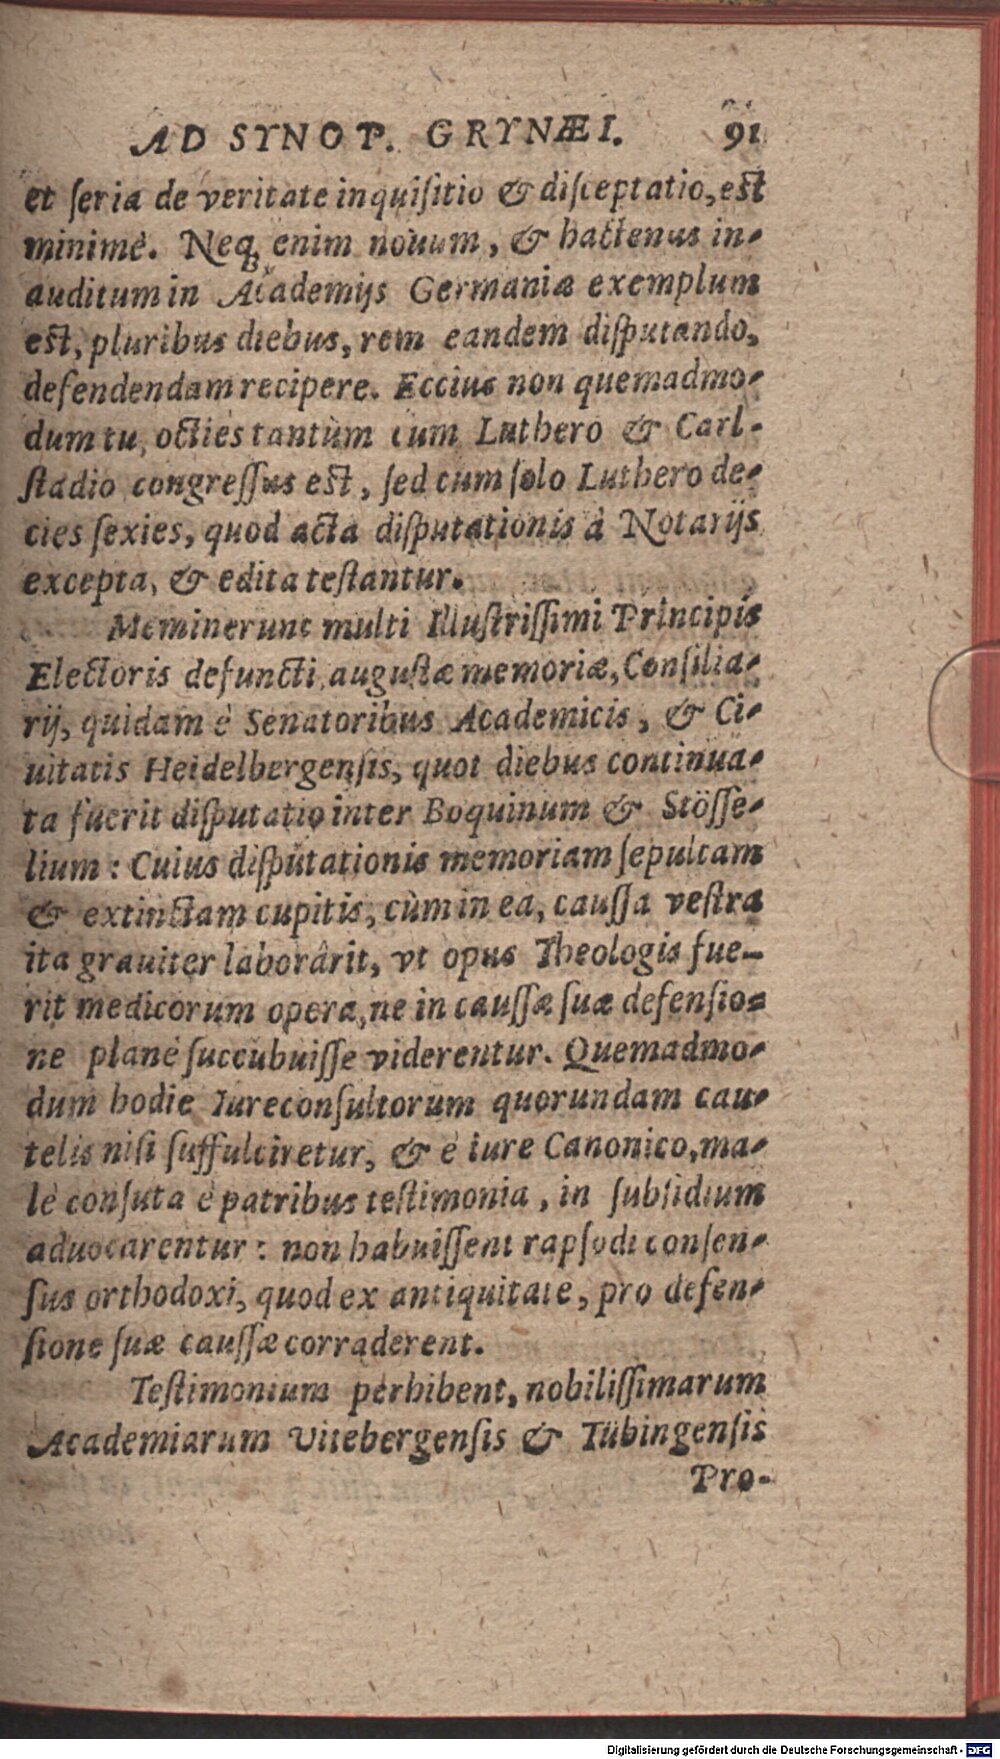 AD SYNOP. GRYNÆI. 91
et ſeria de veritate inquiſitio & diſceptatio, eſt
minimè. Neq́; enim nouum, & hactenus in-
auditum in Academijs Germaniæ exemplum
eſt, pluribus diebus, rem eandem diſputando,
defendendam recipere. Eccius non quemadmo-
dum tu, octies tantùm cum Luthero & Carl-
ſtadio congreſſus eſt, ſed cum ſolo Luthero de-
cies ſexies, quod acta diſputationis à Notarijs
excepta, & edita teſtantur.
Meminerunt multi Illuſtriſſimi Principis
Electoris defuncti, auguſtæ memoriæ, Conſilia-
rij, quidam è Senatoribus Academicis, & Ci-
uitatis Heidelbergenſis, quot diebus continua-
ta fuerit diſputatio inter Boquinum & Stöſſe-
lium: Cuius diſputationis memoriam ſepultam
& extinctam cupitis, cùm in ea, cauſſa veſtra
ita grauiter laborârit, vt opus Theologis fue-
rit medicorum opera, ne in cauſſæ ſuæ defenſio-
ne planè ſuccubuiſſe viderentur. Quemadmo-
dum hodie Iureconſultorum quorundam cau-
telis niſi ſuffulciretur, & è iure Canonico, ma-
lè conſuta è patribus teſtimonia, in ſubſidium
aduocarentur: non habuiſſent rapſodi conſen-
ſus orthodoxi, quod ex antiquitate, pro defen-
ſione ſuæ cauſſæ corraderent.
Teſtimonium perhibent, nobiliſſimarum
Academiarum Vitebergenſis & Tübingenſis
Pro-
Digitalisierung gefördert durch die Deutsche Forschungsgemeinschaft - DFG